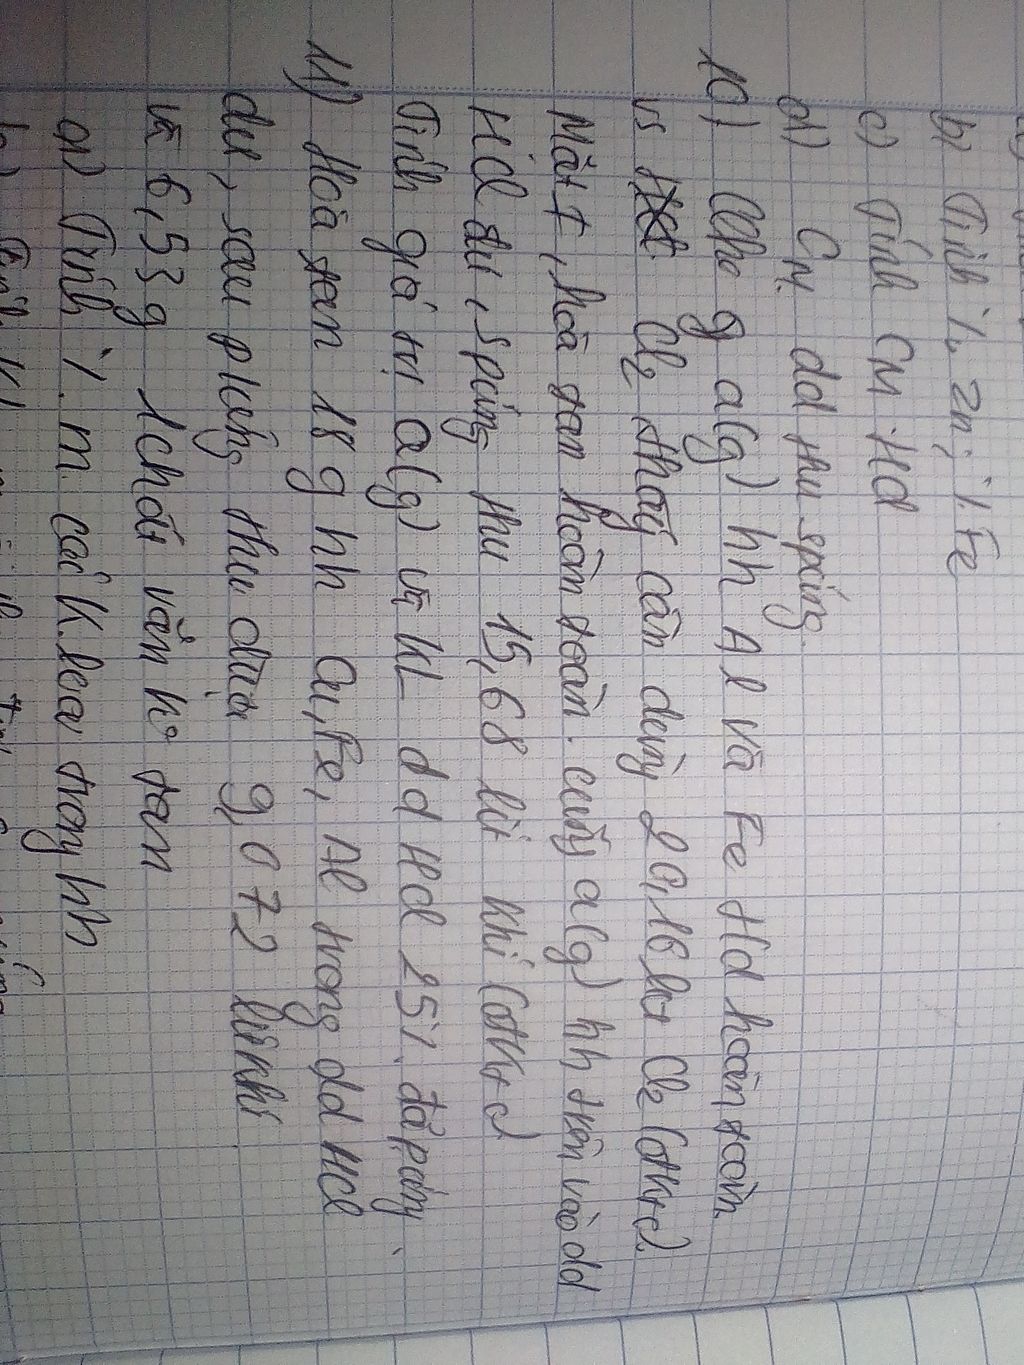 b) Tính % Zn; % Fe
c) Tính CM HCl
d) CM dd thu spứng.
10) Cho g a(g) hh Al và Fe t/d hoàn toàn
vs Cl2 thấy cần dùng 20,16 lit Cl2 (đktc).
Mặt ≠, hoà tan hoàn toàn cũng a(g) hh trên vào dd
HCl dư, spứng thu 15,68 lít khí (đktc)
Tính giá trị a(g) và kL dd HCl 25% đã pứng.
11) Hoà tan 18g hh Cu, Fe, Al trong dd HCl
dư, sau phứng thu được 9,072 lít khí
và 6,53g 1 chất rắn ko tan
a) Tính % m các K.loại trong hh